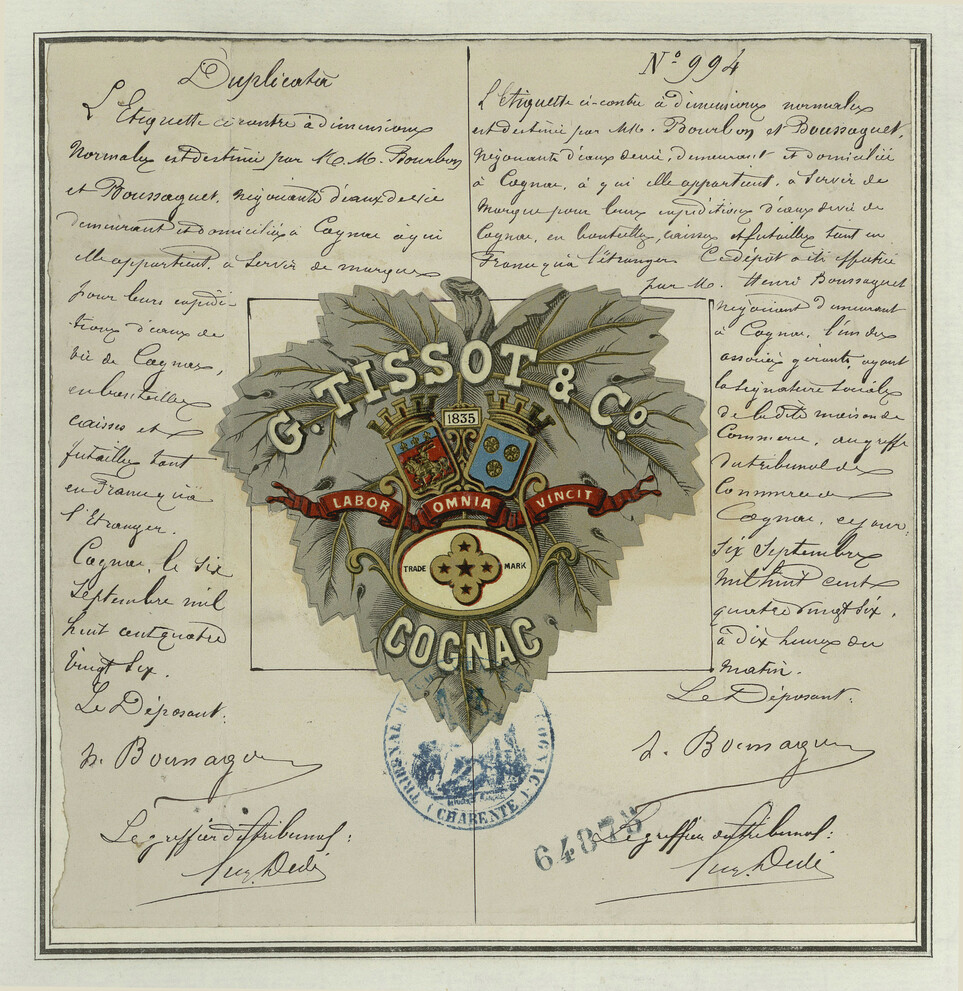 Duplicata
L'Etiquette ci-contre à dimensions
Normales est destinée par M.M. Bourbon
et Boussaguet, négociants d'eaux de vie
demeurant et domiciliés à Cognac à qui
elle appartient, à servir de marques
pour leurs expédi-
tions d'eaux de
vie de Cognac,
en bouteilles
caisses et
futailles tant
en France qu'à
l'Etranger.
Cognac, le six
Septembre mil
huit cent quatre
vingt six.
Le Déposant:
h. Boussaguet
Le greffier du tribunal:
N.º 994
L'Etiquette ci-contre à dimensions normales
est destinée par MM. Bourbon et Boussaguet,
négociants d'eaux de vie, demeurant et domiciliés
à Cognac, à qui elle appartient, à servir de
Marque pour leurs expéditions d'eaux de vie de
Cognac, en bouteilles, caisses et futailles tant en
France qu'à l'étranger. Ce dépôt a été effectué
par M. Henri Boussaguet
négociant demeurant
à Cognac, l'un des
associés gérants, ayant
la signature sociale
de la dite maison de
Commerce, au greffe
du tribunal de
Commerce de
Cognac, ce jour
six Septembre
mil huit cent
quatre vingt six,
à dix heures du
matin.
Le Déposant:
h. Boussaguet
Le greffier du tribunal:
G. TISSOT & Cº
1835
LABOR OMNIA VINCIT
TRADE MARK
COGNAC
TRIBUNAL COGNAC
(CHARENTE)
64873